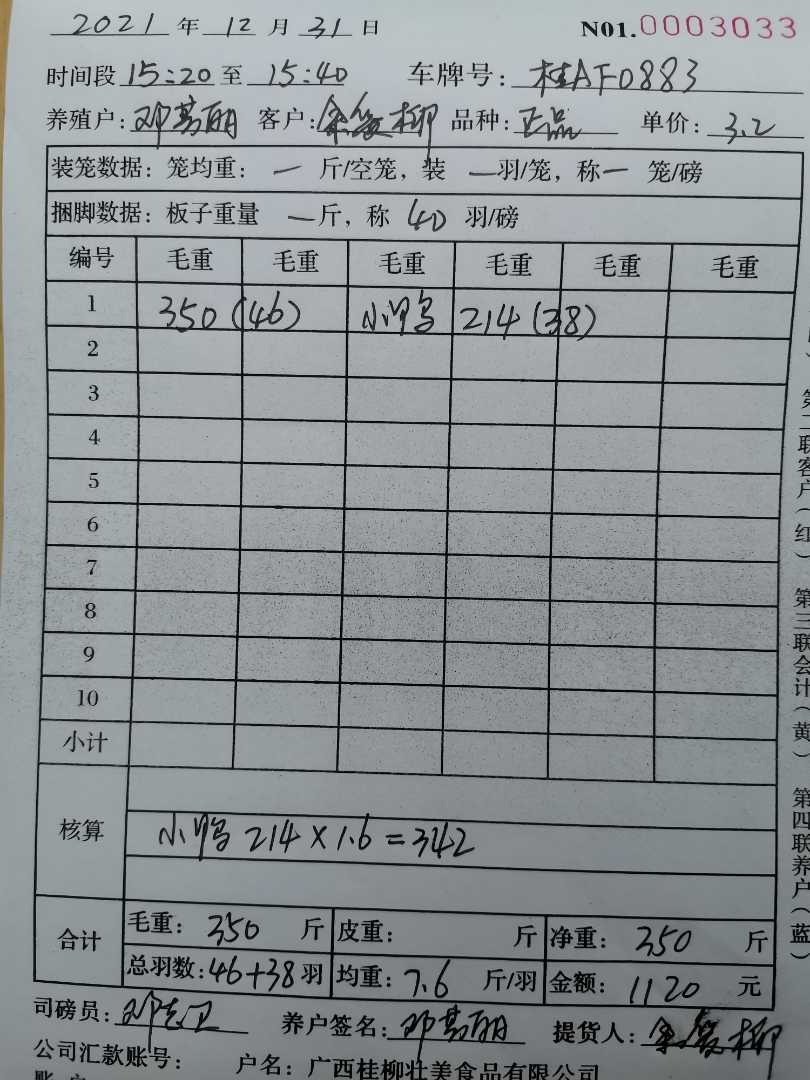 2021 年 12 月 31 日 N01.0003033
时间段 15:20 至 15:40 车牌号: 桂AF0883
养殖户: 邓 丽 客户: 柳 品种: 正品 单价: 3.2
装笼数据: 笼均重: 一 斤/空笼, 装 一 羽/笼, 称 一 笼/磅
捆脚数据: 板子重量 一 斤, 称 40 羽/磅
编号 毛重 毛重 毛重 毛重 毛重 毛重
1 350 (46) 小鸭 214 (38)
2
3
4
5
6
7
8
9
10
小计
核算 小鸭 214 × 1.6 = 342
合计 毛重: 350 斤 皮重: 斤 净重: 350 斤
总羽数: 46+38 羽 均重: 7.6 斤/羽 金额: 1120 元
司磅员: 邓志卫 养户签名: 邓 丽 提货人: 柳
公司汇款账号: 户名: 广西桂柳壮美食品有限公司
第二联客户(红) 第三联会计(黄) 第四联养户(蓝)